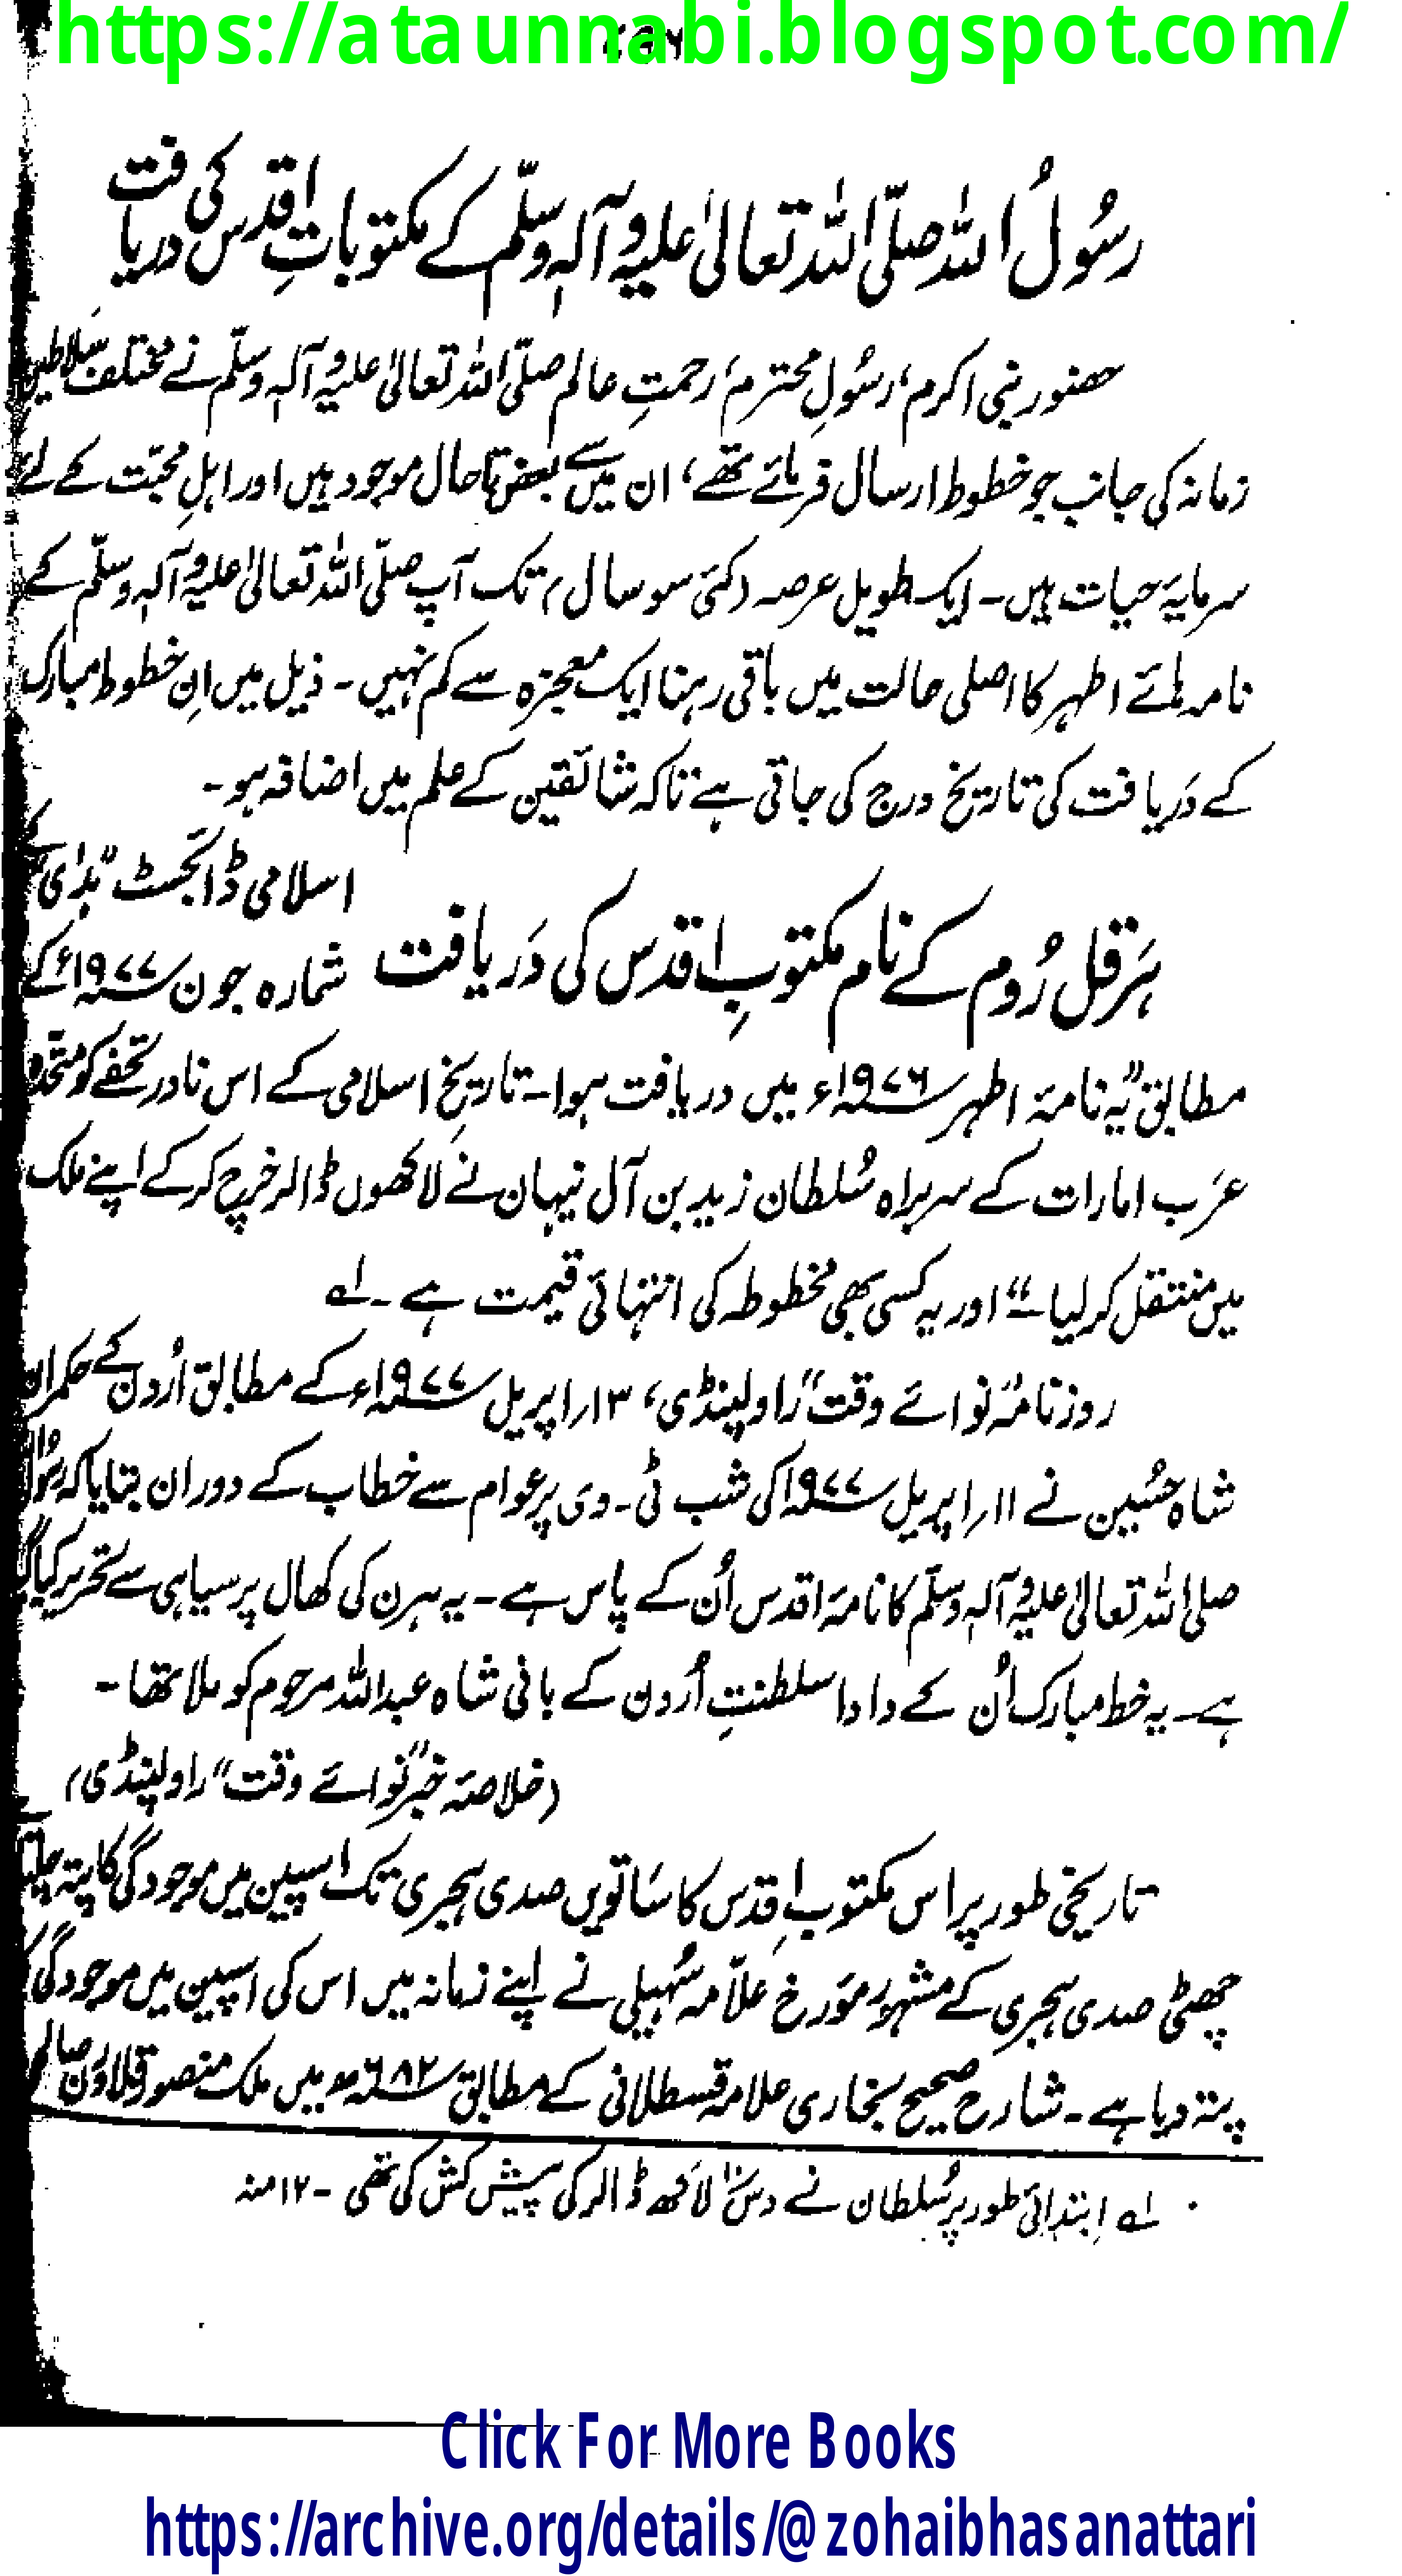 https://ataunnabi.blogspot.com/
رسُولُ اللہ صلّی اللہ تعالیٰ علیہ وآلہٖ وسلّم کے مکتوباتِ اقدس کی دریافت
حضور نبی اکرم، رسُولِ محترم، رحمتِ عالم صلّی اللہ تعالیٰ علیہ وآلہٖ وسلّم نے مختلف سلاطینِ
زمانہ کی جانب جو خطوط ارسال فرمائے تھے، ان میں سے بعض تا حال موجود ہیں اور اہلِ محبّت کے لئے
سرمایۂ حیات ہیں۔ ایک طویل عرصہ (کئی سو سال) تک آپ صلّی اللہ تعالیٰ علیہ وآلہٖ وسلّم کے
نامہ ہائے اطہر کا اصلی حالت میں باقی رہنا ایک معجزہ سے کم نہیں۔ ذیل میں اِن خطوط مبارک
کے دَریافت کی تاریخ درج کی جاتی ہے تاکہ شائقین کے علم میں اضافہ ہو۔
ہَرقل رُوم کے نام مکتوبِ اقدس کی دَریافت
اسلامی ڈائجسٹ "ہدٰی" کے
شمارہ جون ۱۹۷۷ء کے
مطابق "یہ نامۂ اطہر ۱۹۷۶ء میں دریافت ہوا۔ تاریخِ اسلامی کے اس نادر تحفے کو متّحدہ
عرَب امارات کے سربراہ سُلطان زید بن آل نیہان نے لاکھوں ڈالر خرچ کر کے اپنے ملک
میں منتقل کر لیا۔" اور یہ کسی بھی مخطوطہ کی انتہائی قیمت ہے۔ لہ
روزنامہ "نوائے وقت" راولپنڈی، ۱۳؍اپریل ۱۹۷۷ء کے مطابق اُردن کے حکمران
شاہ حسُین نے ۱۱؍اپریل ۱۹۷۷ کی شب ٹی۔وی پر عوام سے خطاب کے دوران بتایا کہ رسُول اللہ
صلی اللہ تعالیٰ علیہ وآلہٖ وسلّم کا نامۂ اقدس اُن کے پاس ہے۔ یہ ہرن کی کھال پر سیاہی سے تحریر کیا گیا
ہے۔ یہ خط مبارک اُن کے دادا سلطنتِ اُردن کے بانی شاہ عبداللہ مرحوم کو ملا تھا۔
(خلاصۂ خبر "نوائے وقت" راولپنڈی)
تاریخی طور پر اس مکتوبِ اقدس کا سَاتویں صدی ہجری تک اسپین میں موجودگی کا پتہ چلتا
چھٹی صدی ہجری کے مشہور مؤرخ علاّمہ سُہیلی نے اپنے زمانہ میں اس کی اسپین میں موجودگی کا
پتہ دیا ہے۔ شارح صحیح بخاری علامہ قسطلانی کے مطابق ۶۸۲ھ میں ملک منصور قلاوُن صالحی
لہ اِبتدائی طور پر سُلطان نے دس لاکھ ڈالر کی پیش کش کی تھی۔ ۱۲ منہ
Click For More Books
https://archive.org/details/@zohaibhasanattari